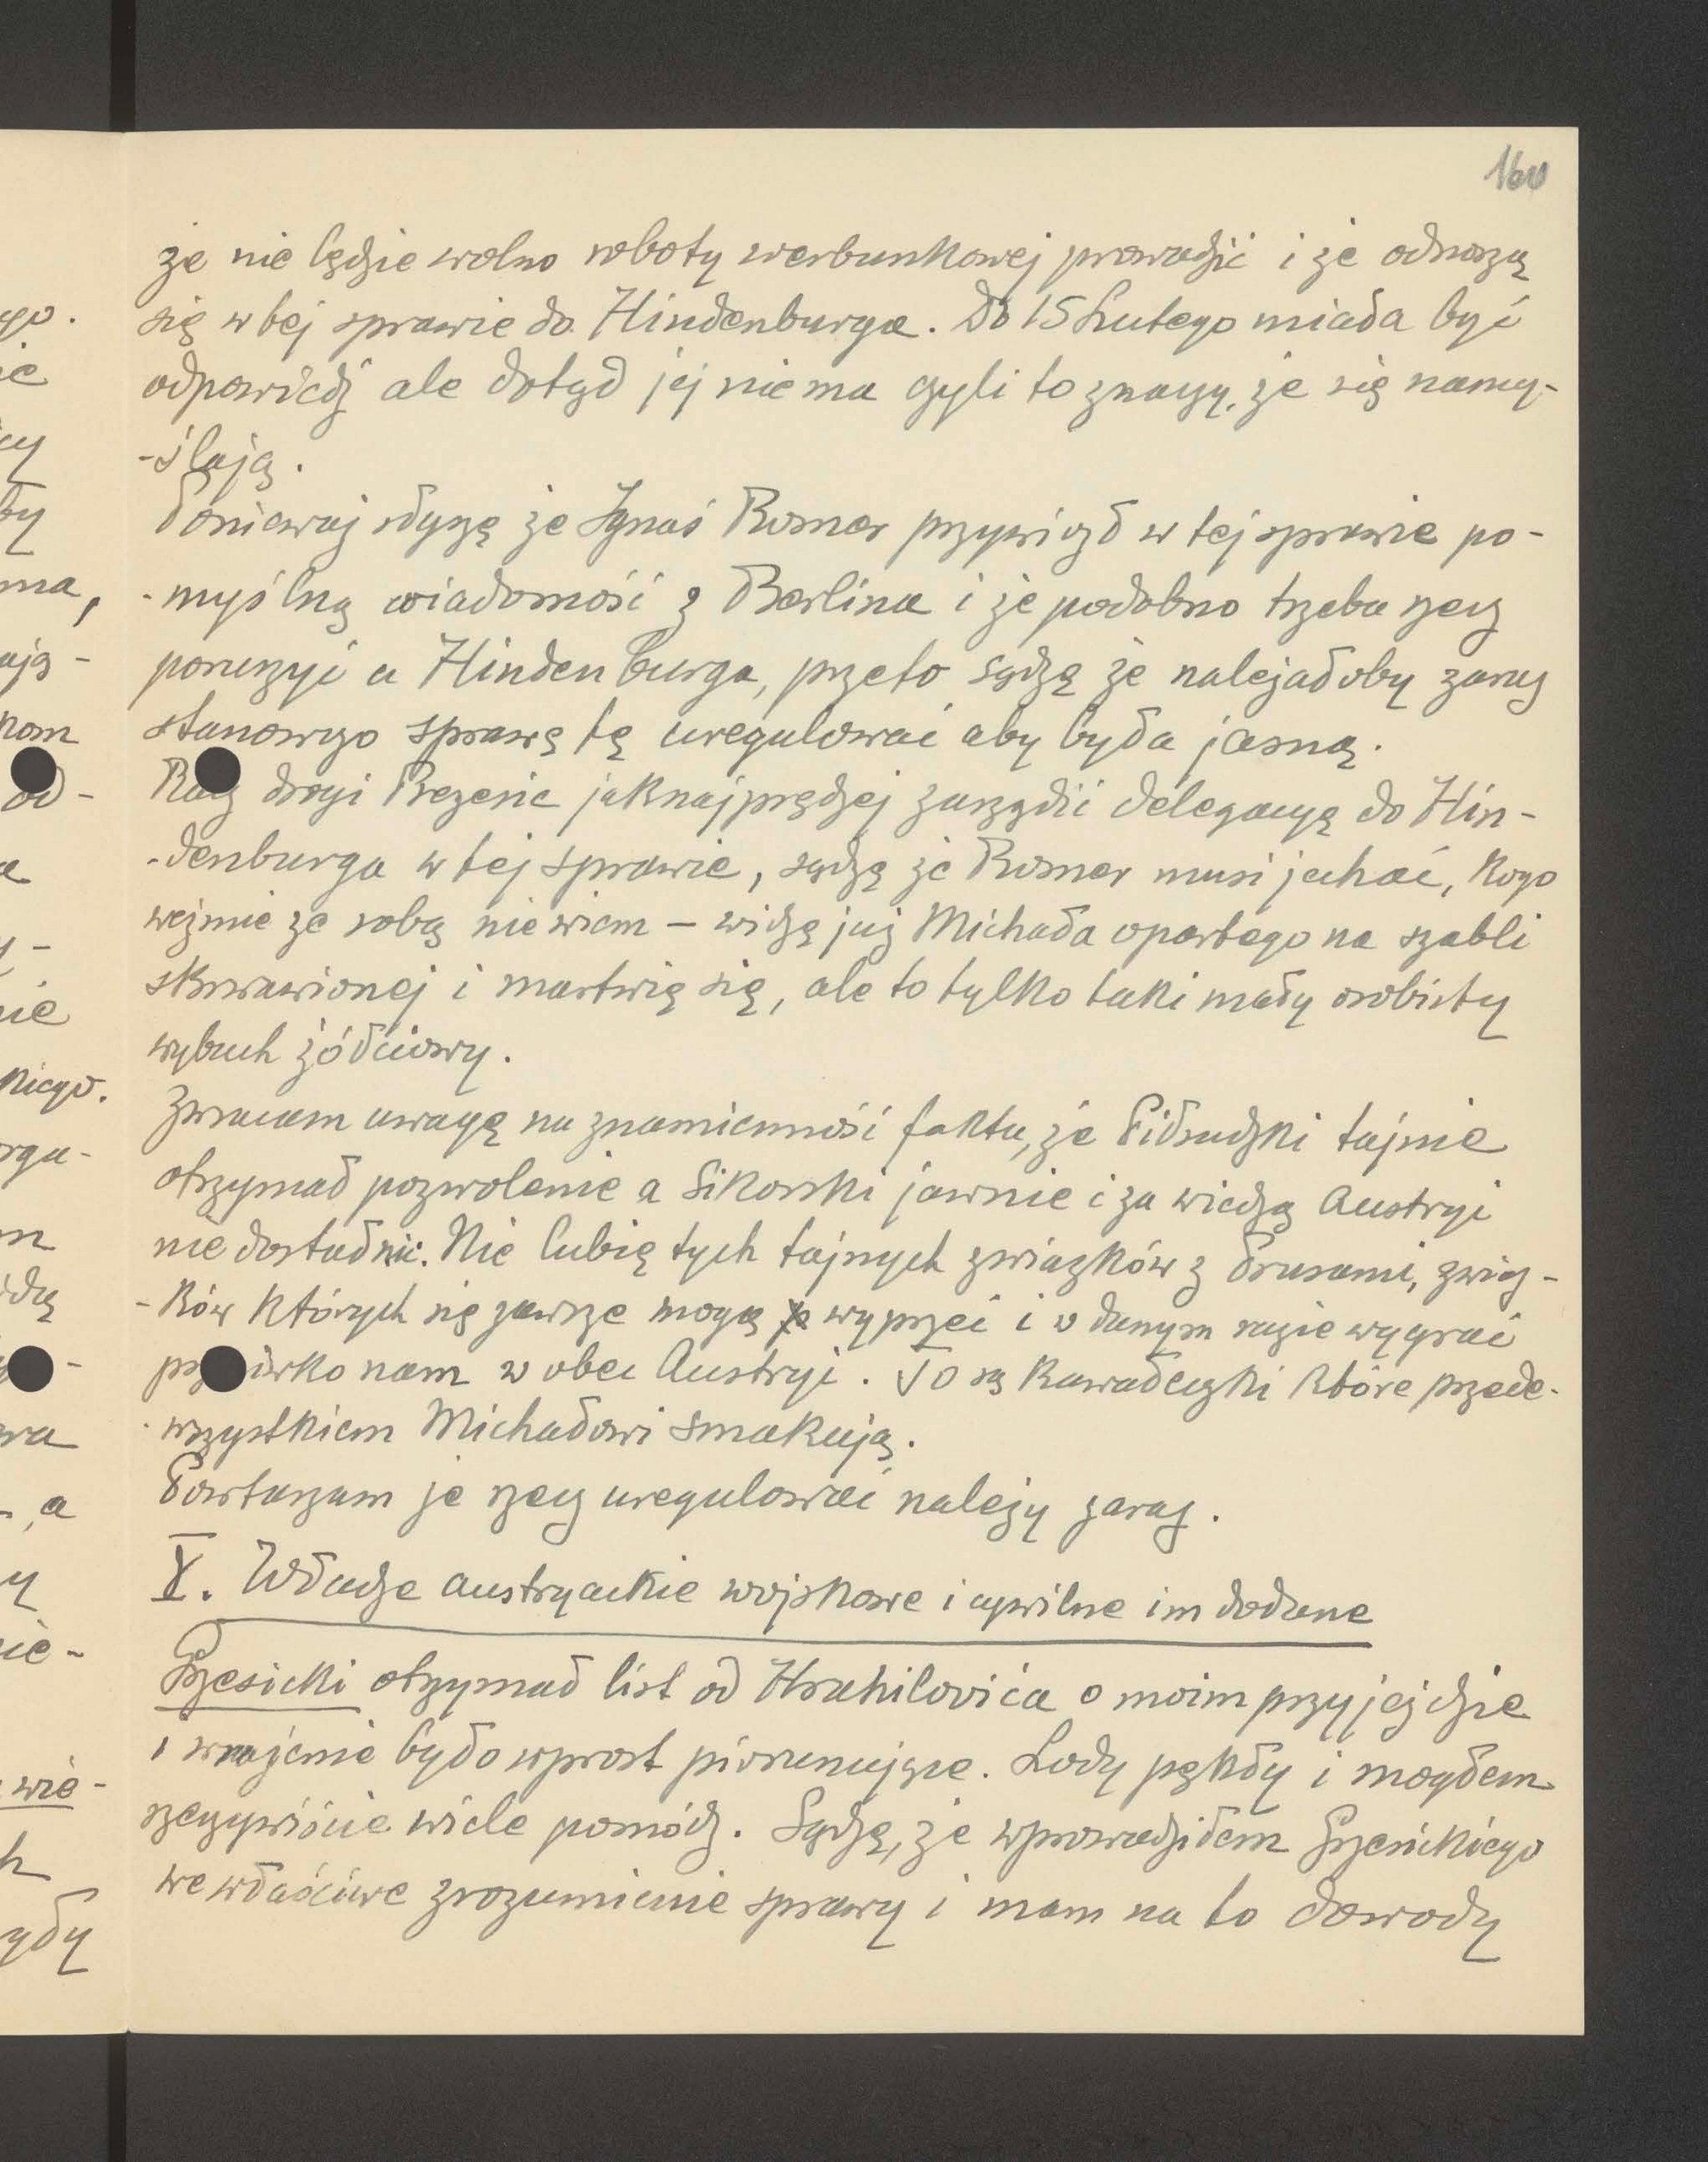 160
że nie będzie wolno roboty werbunkowej prowadzić i że odnoszą
się w tej sprawie do Hindenburga. Do 15 Lutego miała być
odpowiedź ale dotąd jej niema czyli to znaczy, że się namy-
-ślają.
Ponieważ słyszę że Ignaś Romer przywiózł w tej sprawie po-
-myślną wiadomość z Berlina i że podobno trzeba rzecz
poruszyć u Hindenburga, przeto sądzę że należałoby zaraz
stanowczo sprawę tę uregulować aby była jasną.
Racz drogi Prezesie jaknajprędzej zarządzić delegacyę do Hin-
-denburga w tej sprawie, sądzę że Romer musi jechać, kogo
weźmie ze sobą nie wiem – widzę już Michała opartego na szabli
skrwawionej i martwię się, ale to tylko taki mały osobisty
wybuch żółciowy.
Zwracam uwagę na znamienność faktu, że Piłsudzki tajnie
otrzymał pozwolenie a Sikorski jawnie i za wiedzą Austryi
nie dostał nic. Nie lubię tych tajnych związków z Prusami, związ-
-ków których się zawsze mogą wyprzeć i w danym razie wygrać
przeciwko nam w obec Austryi. To są kawałeczki które przede-
-wszystkiem Michałowi smakują.
Powtarzam że rzecz uregulować należy zaraz.
V. Władze austryackie wojskowe i cywilne im dodane
Grzesicki otrzymał list od Hrahilovića o moim przyjeździe
i wrażenie było wprost piorunujące. Lody pękły i mogłem
rzeczywiście wiele pomódz. Sądzę, że wprowadziłem Grzesickiego
we właściwe zrozumienie sprawy i mam na to dowody